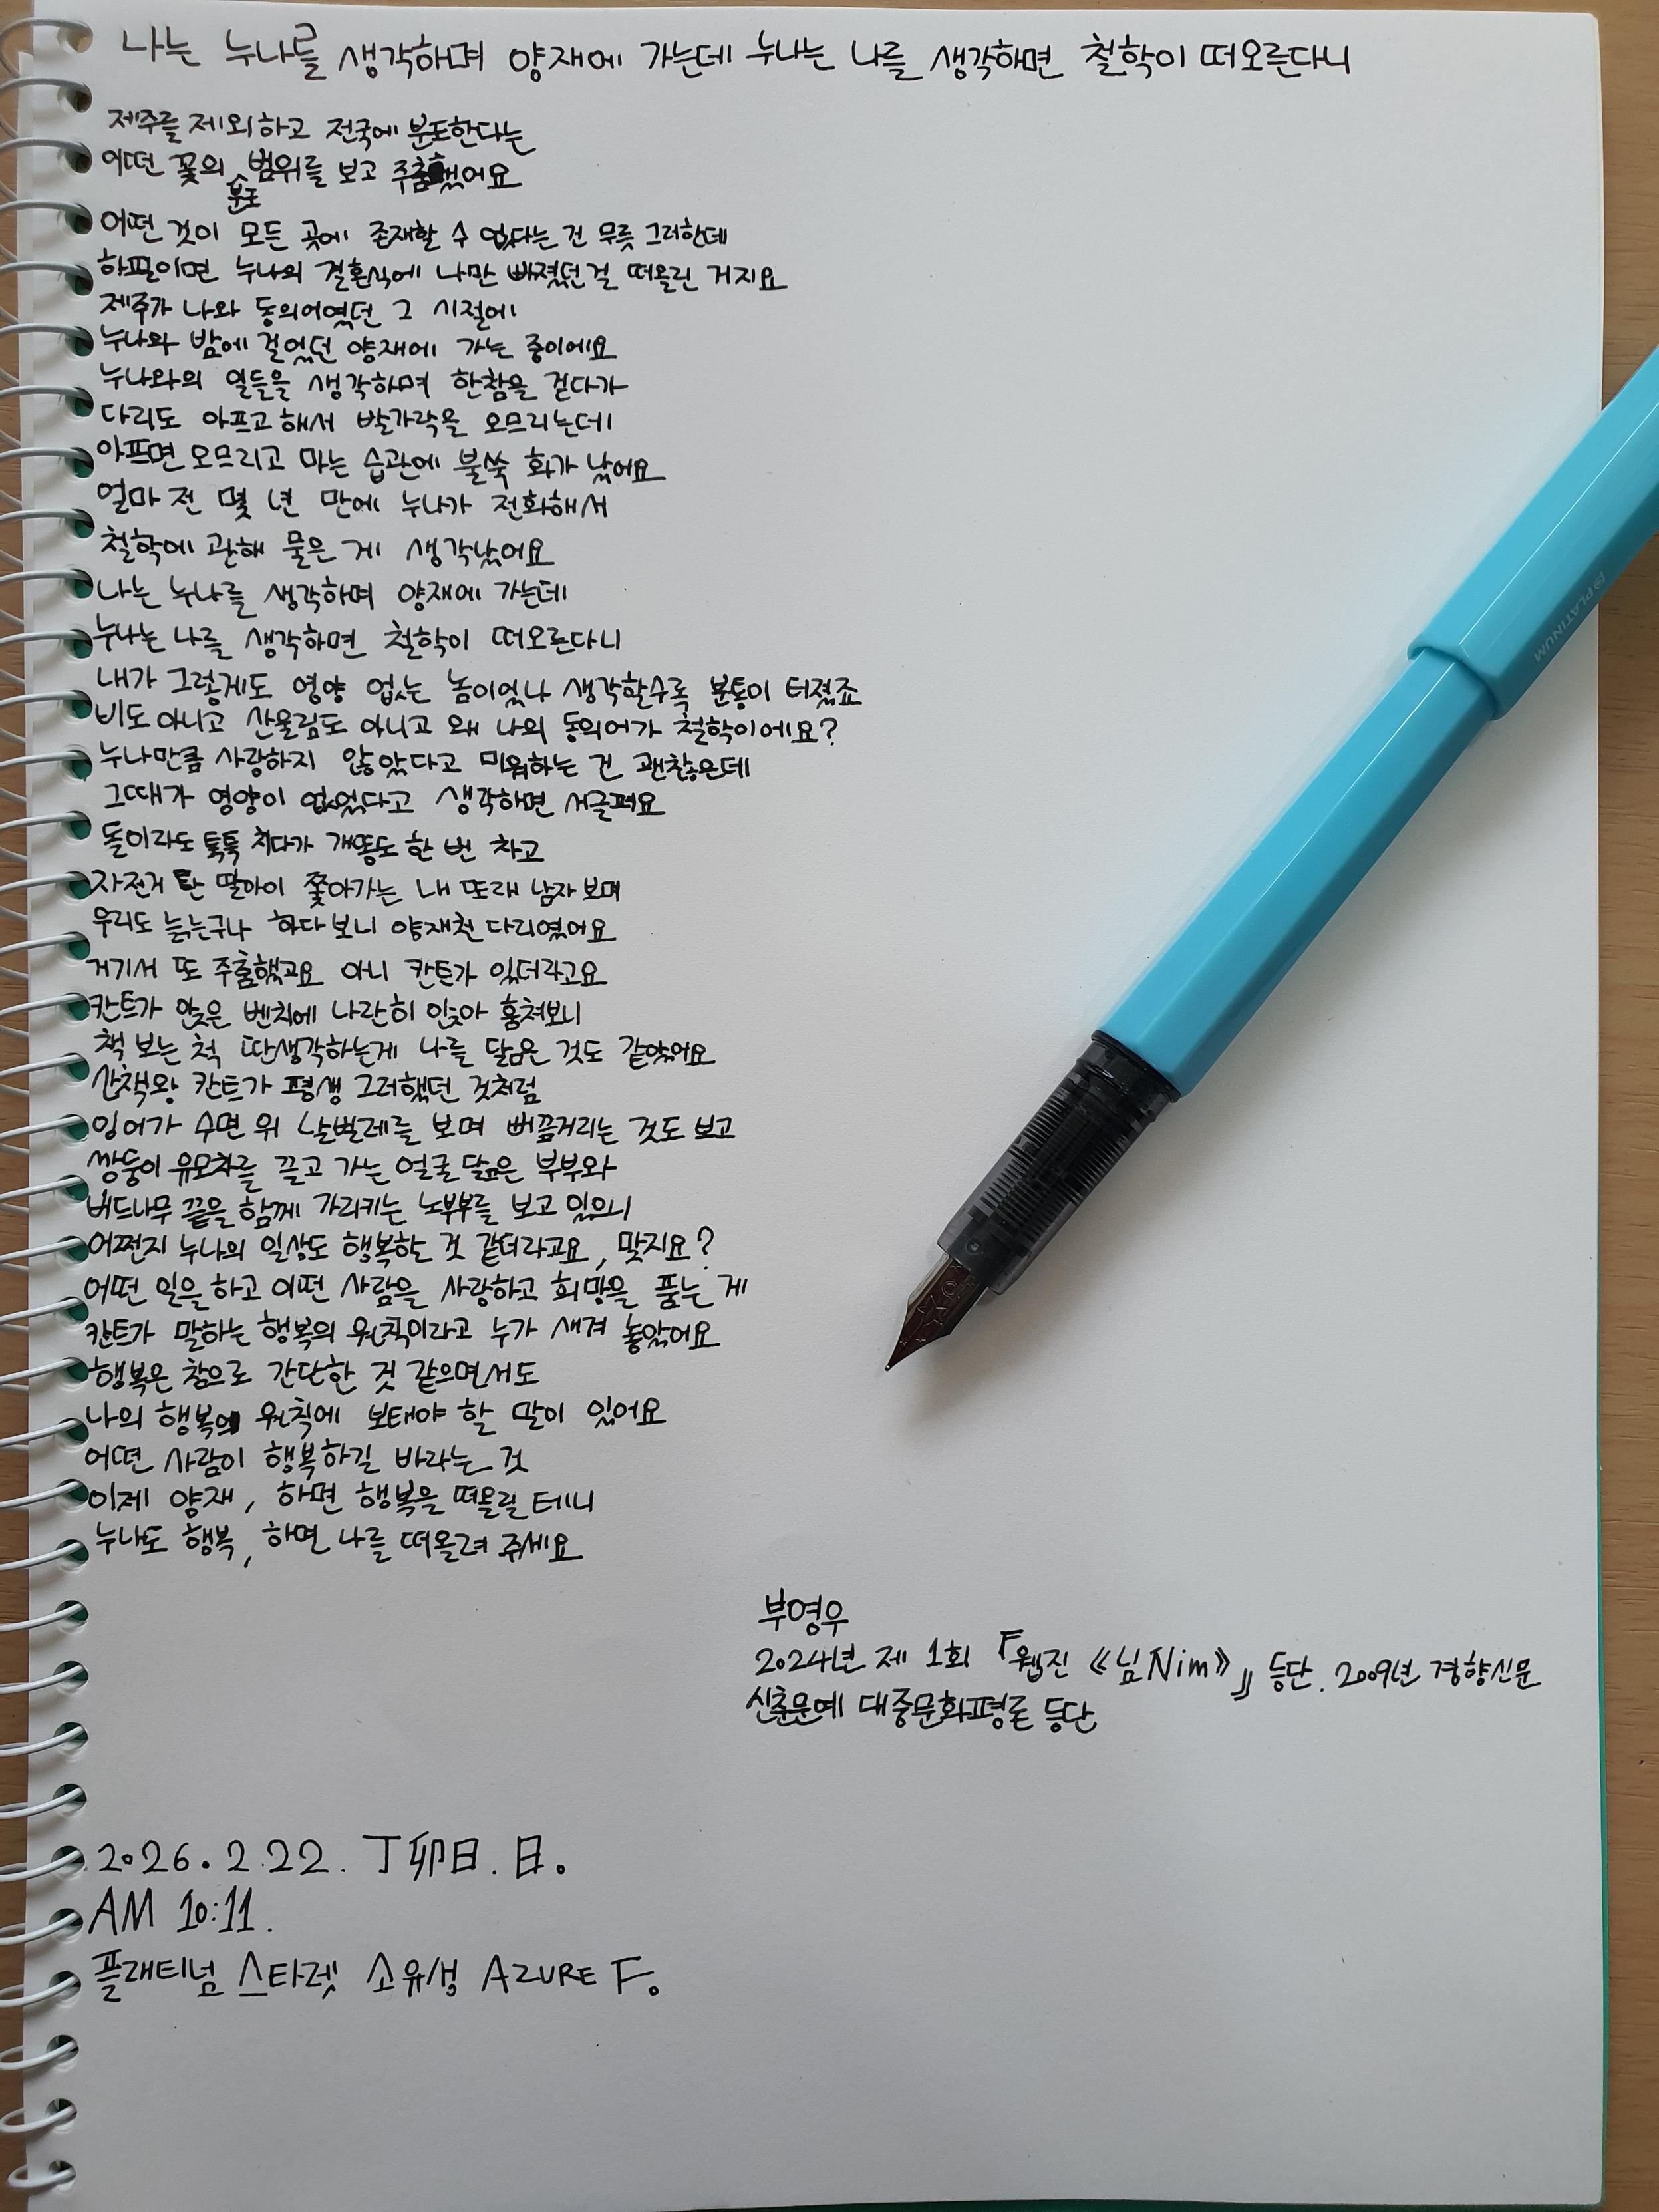 나는 누나를 생각하며 양재에 가는데 누나는 나를 생각하면 철학이 떠오른다니
제주를 제외하고 전국에 분포한다는
어떤 꽃의 분포 범위를 보고 주춤했어요
어떤 것이 모든 곳에 존재할 수 없다는 건 무릇 그러한데
하필이면 누나의 결혼식에 나만 빠졌던 걸 떠올린 거지요
제주가 나와 동의어였던 그 시절에
누나와 밤에 걸었던 양재에 가는 중이에요
누나와의 일들을 생각하며 한참을 걷다가
다리도 아프고 해서 발가락을 오므리는데
아프면 오므리고 마는 습관에 불쑥 화가 났어요
얼마 전 몇 년 만에 누나가 전화해서
철학에 관해 물은 게 생각났어요
나는 누나를 생각하며 양재에 가는데
누나는 나를 생각하면 철학이 떠오른다니
내가 그렇게도 영양 없는 놈이었나 생각할수록 분통이 터졌죠
비도 아니고 산울림도 아니고 왜 나의 동의어가 철학이에요?
누나만큼 사랑하지 않았다고 미워하는 건 괜찮은데
그때가 영양이 없었다고 생각하면 서글퍼요
돌이라도 툭툭 치다가 개똥도 한 번 차고
자전거 탄 딸아이 쫓아가는 내 또래 남자 보며
우리도 늙는구나 하다 보니 양재천 다리였어요
거기서 또 주춤했고요 아니 칸트가 있더라고요
칸트가 앉은 벤치에 나란히 앉아 훔쳐보니
책 보는 척 딴생각하는게 나를 닮은 것도 같았어요
산책왕 칸트가 평생 그러했던 것처럼
잉어가 수면 위 날벌레를 보며 뻐끔거리는 것도 보고
쌍둥이 유모차를 끌고 가는 얼굴 닮은 부부와
버드나무 끝을 함께 가리키는 노부부를 보고 있으니
어쩐지 누나의 일상도 행복한 것 같더라고요, 맞지요?
어떤 일을 하고 어떤 사람을 사랑하고 희망을 품는 게
칸트가 말하는 행복의 원칙이라고 누가 새겨 놓았어요
행복은 참으로 간단한 것 같으면서도
나의 행복의 원칙에 보태야 할 말이 있어요
어떤 사람이 행복하길 바라는 것
이제 양재, 하면 행복을 떠올릴 테니
누나도 행복, 하면 나를 떠올려 주세요
부영우
2024년 제 1회 『웹진 《님Nim》』 등단. 2009년 경향신문
신춘문예 대중문화평론 등단
2026. 2. 22. 丁卯日. 日.
AM 10:11.
플래티넘 스타렛 소유생 AZURE F.
PLATINUM